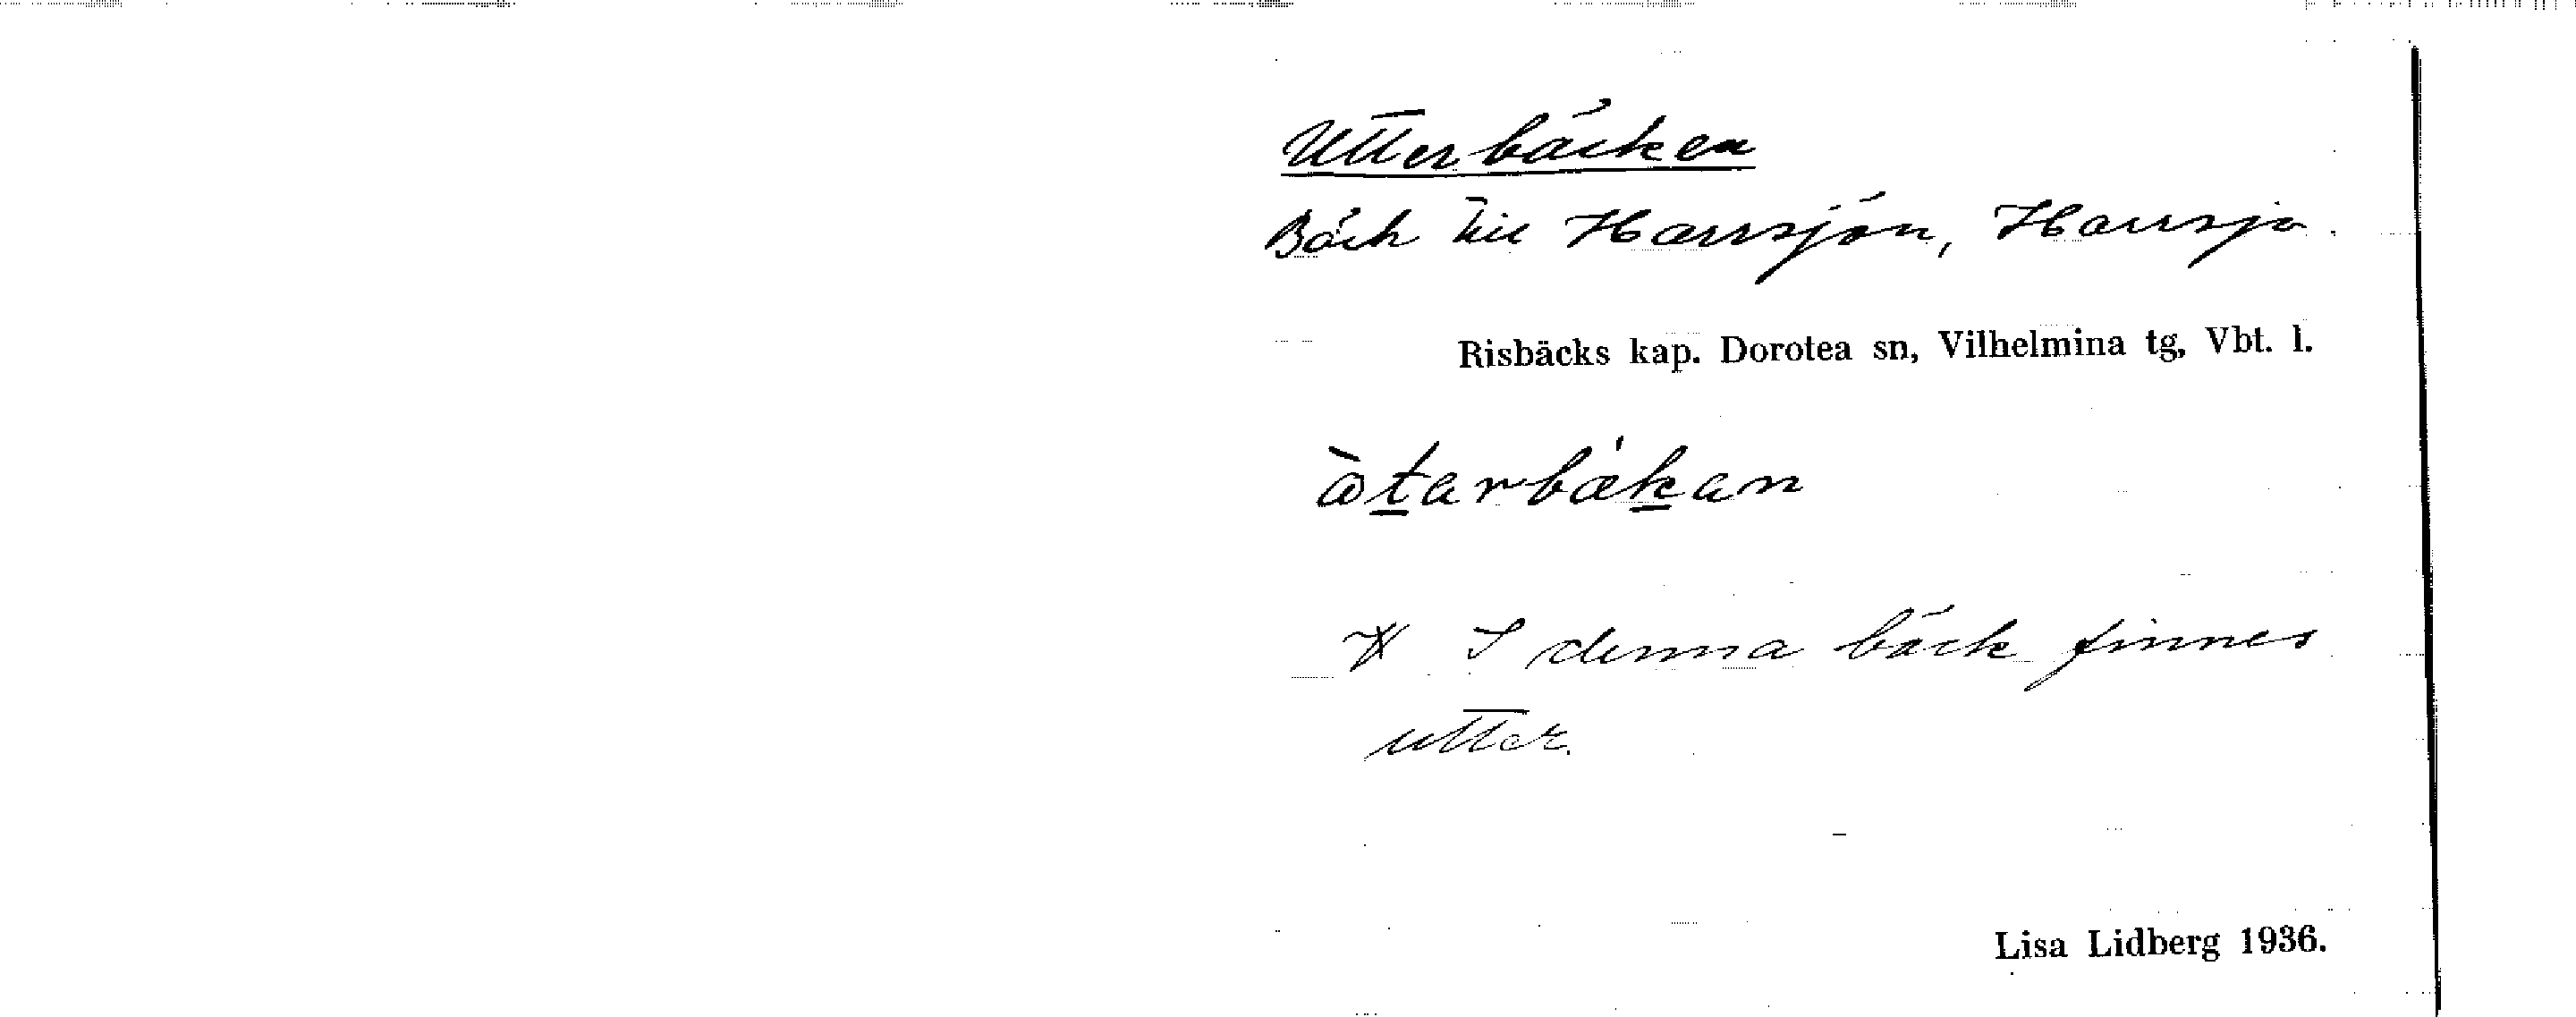 Utterbäcken
Bäck till Harrsjön, Harrsjö.
Risbäcks kap. Dorotea sn, Vilhelmina tg, Vbt. l.
àtarbækan
I denna bäck finnes
utter.
Lisa Lidberg 1936.